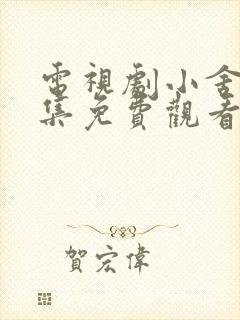 電視劇小舍
集免費觀看
賀宏偉